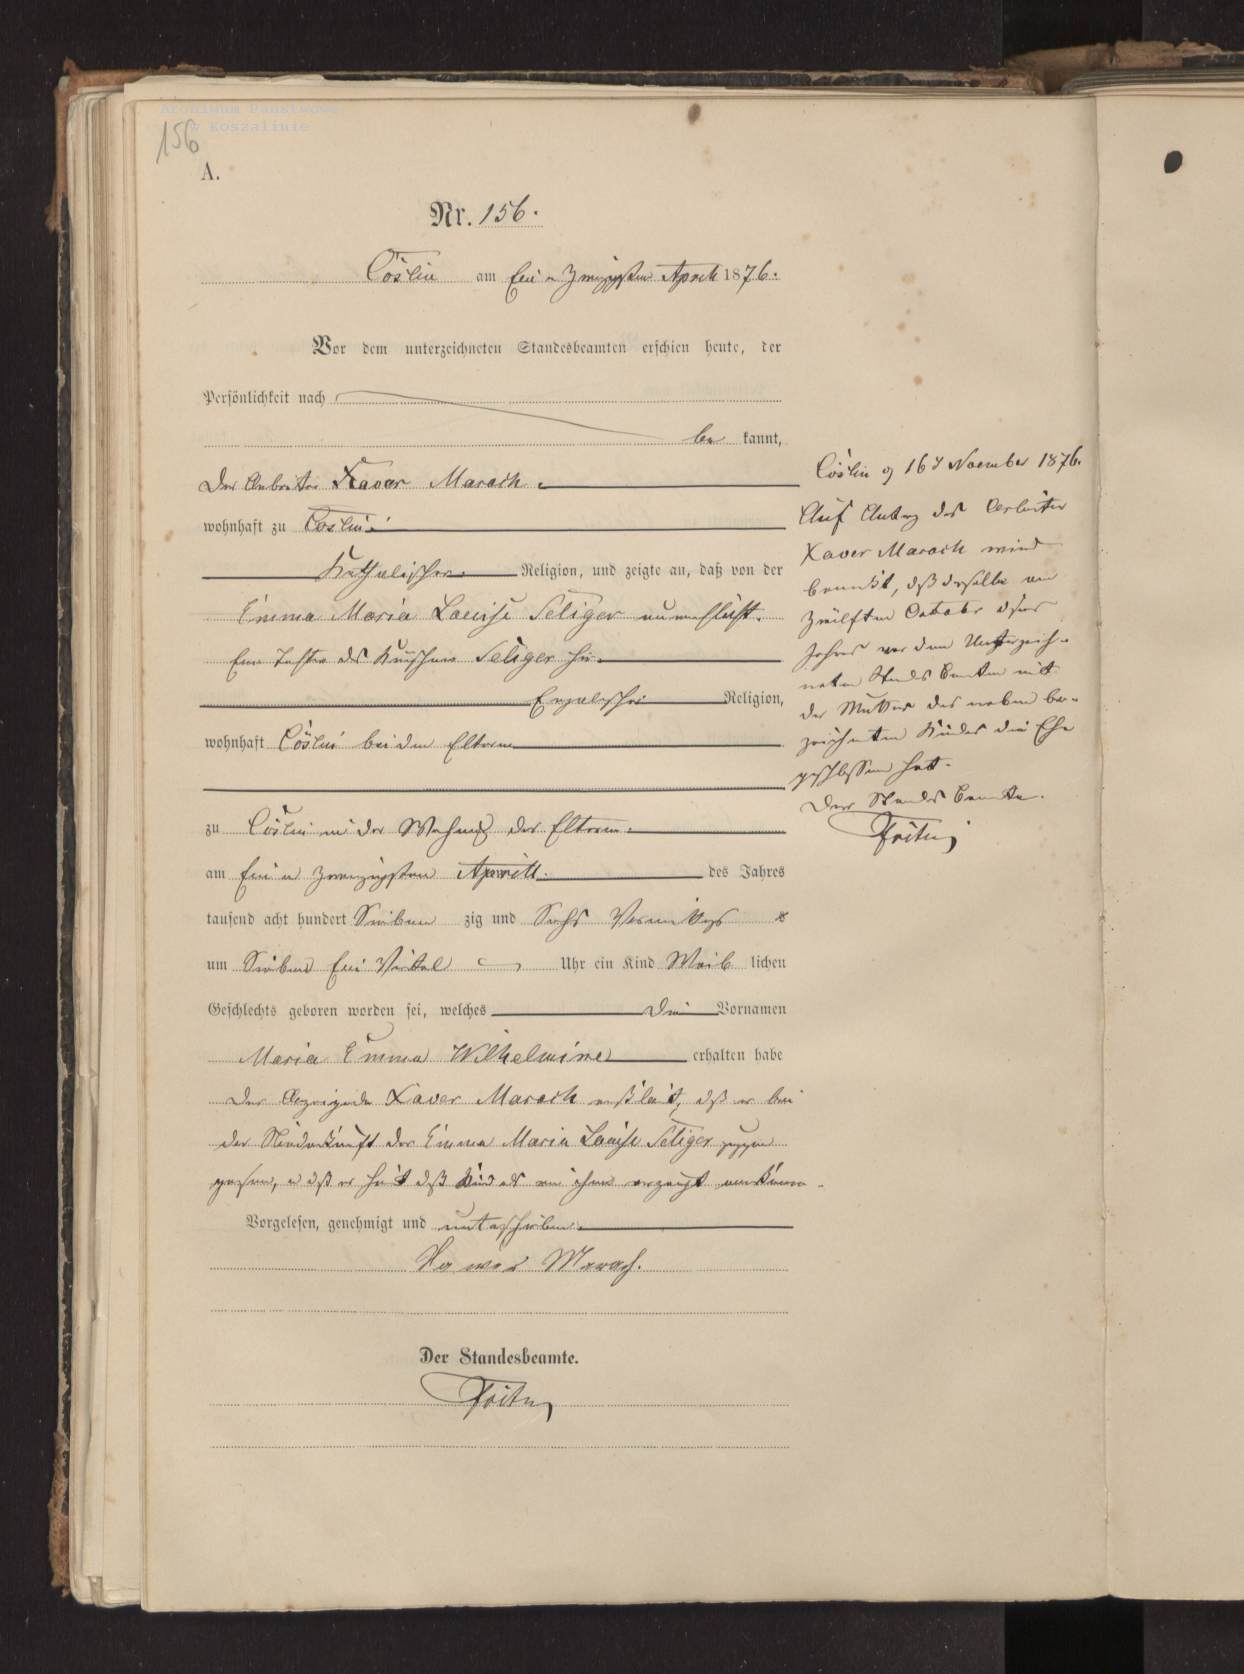 Archiwum Państwowe
w Koszalinie
156
A.
Nr. 156.
Cöslin am Ein u zwanzigsten April 1876.
Vor dem unterzeichneten Standesbeamten erschien heute, der
Persönlichkeit nach
be kannt,
Der Arbeiter Xaver Marach
wohnhaft zu Coslin
Katholischer Religion, und zeigte an, daß von der
Emma Maria Louise Seliger unverehlicht.
Eine Tochter des Seliger hier
Evgelischer Religion,
wohnhaft Cöslin bei den Eltern
zu Cöslin in der Wohnung der Eltern
am Ein u zwanzigsten Aprill des Jahres
tausend acht hundert Sieben zig und Sechs Vormittags
um Sieben Ein Viertel Uhr ein Kind Weib lichen
Geschlechts geboren worden sei, welches Die Vornamen
Maria Emma Wilhelmine erhalten habe
Der Anzeigende Xaver Marach erklärt, dß er bei
der Niederkunft der Emma Maria Louise Seliger zugegen
gewesen, u dß er hie dß Kind als von ihm erzeugt anerkenne.
Vorgelesen, genehmigt und unterschrieben
Xawer Marach.
Der Standesbeamte.
Cöslin 16 November 1876.
Auf Antrag des Arbeiter
Xaver Marach wird
bemerkt, dß derselbe am
Zwölften October dses
Jahres vor dem Unterzeich-
neten Stands Beamten mit
der Mutter des neben be-
zeichneten Kindes die Ehe
geschlossen hat.
Der Stands Beamte.